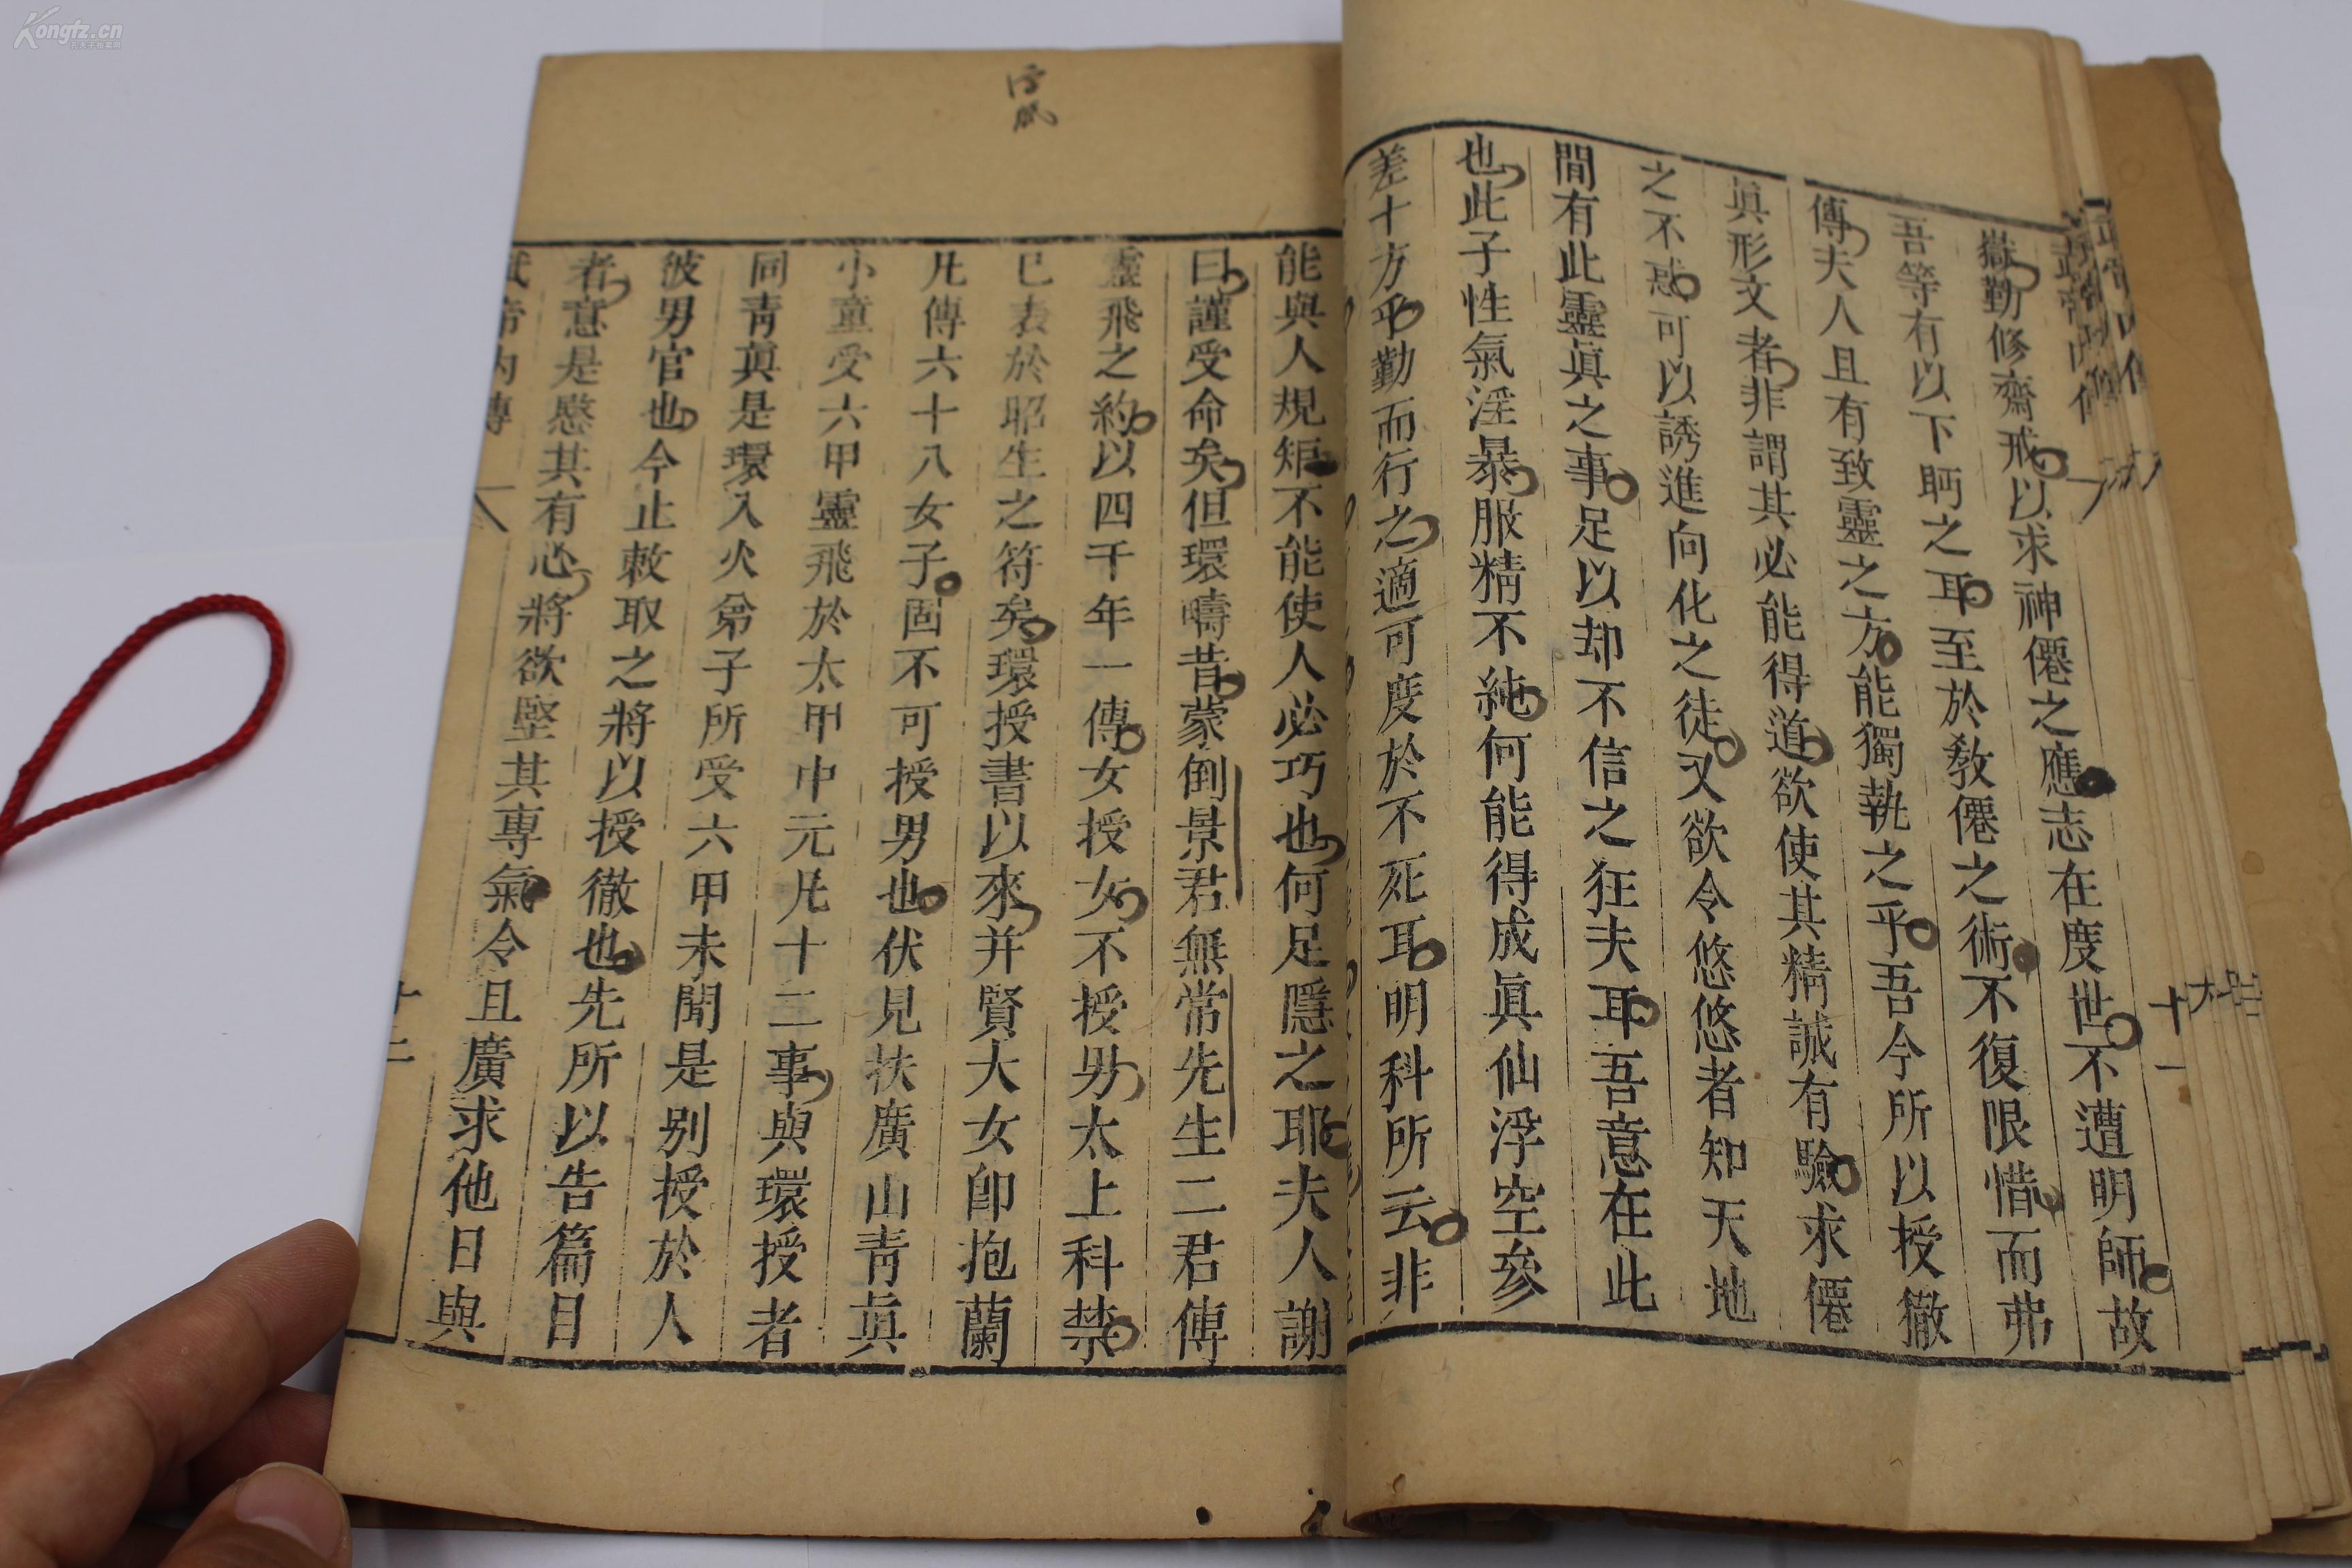 嶽勤修齋戒以求神僊之應志在度世不遭明師故
吾等有以下眄之耳至於敎僊之術不復限惜而弗
傳夫人且有致靈之方能獨執之乎吾今所以授徹
眞形文者非謂其必能得道欲使其精誠有驗求僊
之不惑可以誘進向化之徒又欲令悠悠者知天地
間有此靈眞之事足以却不信之狂夫耳吾意在此
也此子性氣淫暴服精不純何能得成眞仙浮空參
差十方乎勤而行之適可度於不死耳明科所云非
十一
能與人規矩不能使人必巧也何足隱之耶夫人謝
曰謹受命矣但環疇昔蒙倒景君無常先生二君傳
靈飛之約以四千年一傳女授女不授男太上科禁
已表於昭生之符矣環授書以來并賢大女卽抱蘭
凡傳六十八女子固不可授男也伏見扶廣山靑眞
小童受六甲靈飛於太甲中元凡十二事與環授者
同靑眞是環入火弟子所受六甲未聞是别授於人
彼男官也今止敕取之將以授徹也先所以告篇目
者意是愍其有心將欲堅其專氣令且廣求他日與
武帝內傳
十二
Kongfz.cn